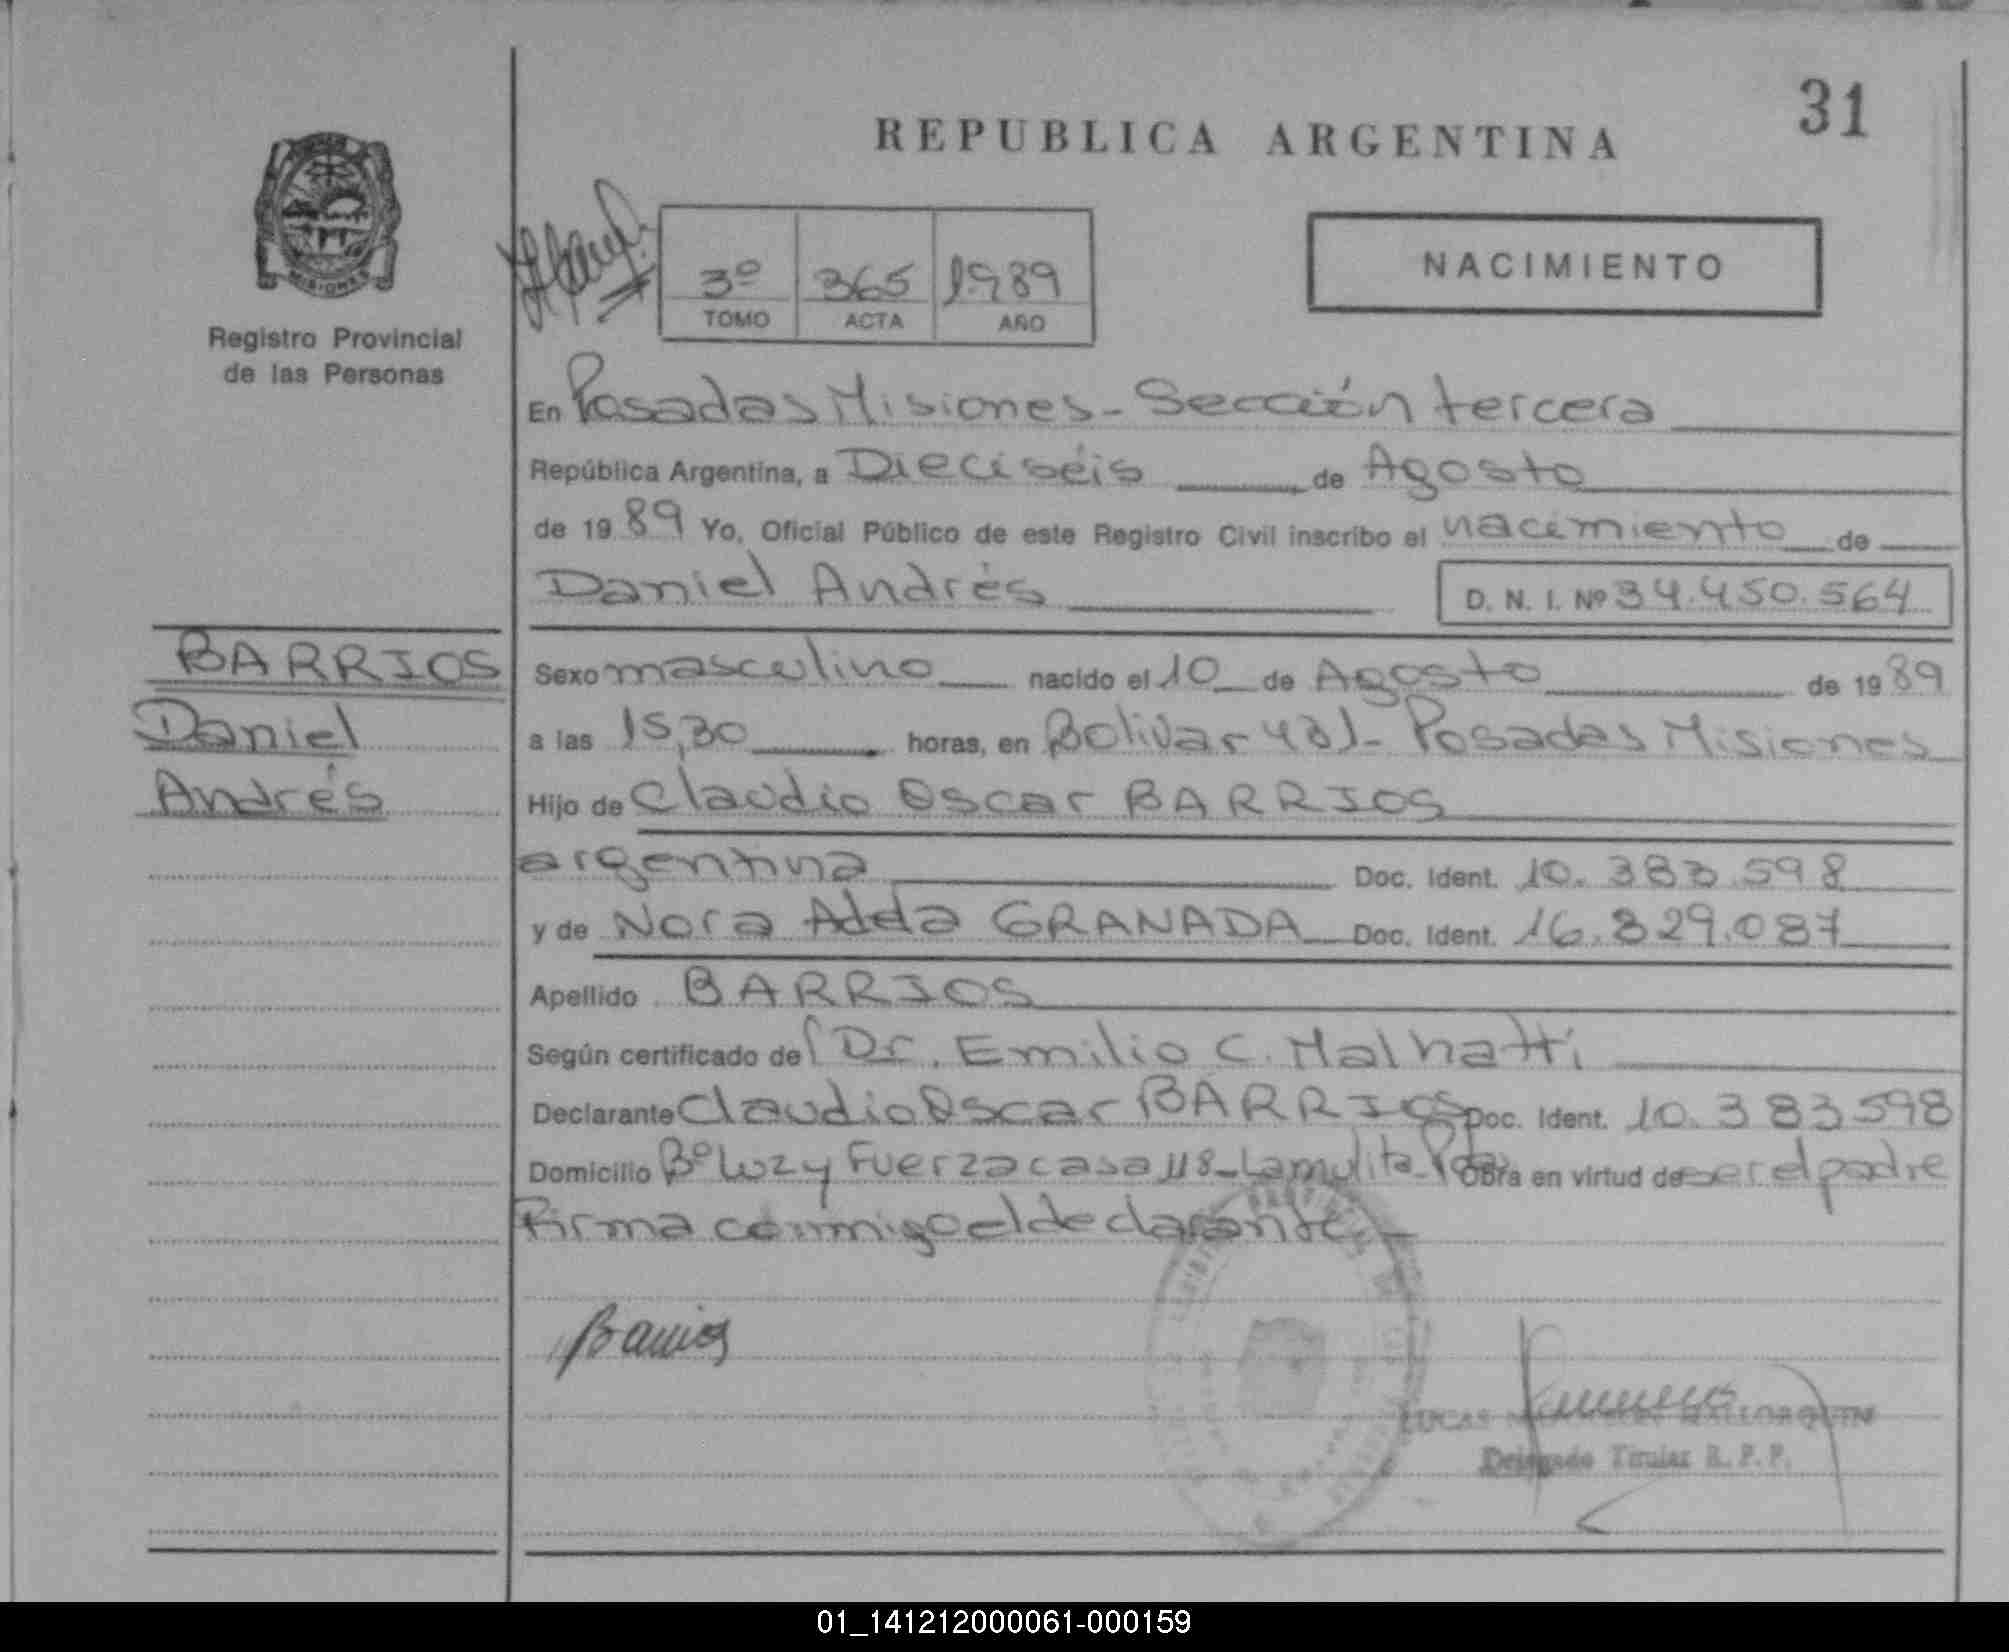 31
REPUBLICA ARGENTINA
MISIONES
Registro Provincial
de las Personas
3º 365 1989
TOMO ACTA AÑO
NACIMIENTO
En Posadas Misiones - Sección tercera
República Argentina, a Dieciséis de Agosto
de 19 89 Yo, Oficial Público de este Registro Civil inscribo el nacimiento de
Daniel Andrés D. N. I. Nº 34.450.564
BARRIOS
Daniel
Andrés
Sexo masculino nacido el 10 de Agosto de 19 89
a las 15,30 horas, en Bolivar 431 - Posadas Misiones
Hijo de Claudio Oscar BARRIOS
argentina Doc. Ident. 10.383.598
y de Nora Adda GRANADA Doc. Ident. 16.829.087
Apellido BARRIOS
Según certificado del Dr. Emilio C. Malhatti
Declarante Claudio Oscar BARRIOS Doc. Ident. 10.383598
Domicilio Bº Luz y Fuerza casa 118 - Lamulita - Pdas Obra en virtud de ser el padre
Firma conmigo el declarante -
Barrios
LUCAS MALLORQUIN
Delegado Titular R. P. P.
01_141212000061-000159